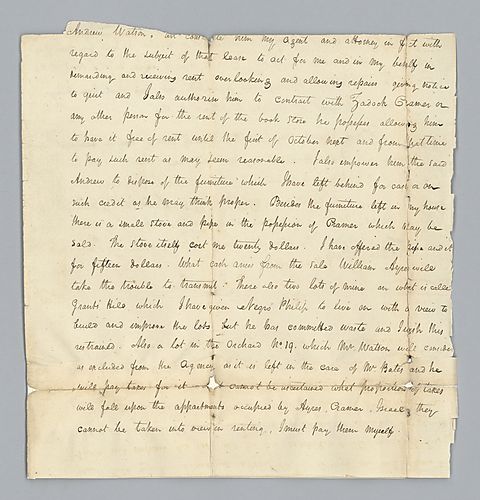 Andrew Watson, and constitute him my agent and attorney in fact with
regard to the subject of that lease to act for me and in my behalf in
demanding and receiving rent overlooking and allowing repairs giving notice
to quit and I also authorize him to contract with Zadock Cramer or
any other person for the rent of the book store he possesses allowing him
to have it free of rent until the first of October next and from that time
to pay such rent as may seem reasonable. I also empower him the said
Andrew to dispose of the furniture which I have left behind for cash or on
such credit as he may think proper. Besides the furniture left in my house
there is a small stove and pipe in the possession of Cramer which may be
sold. The stove itself cost me twenty dollars. I have offered the pipe and it
for fifteen dollars. What cash arises from the sale William Ayres will
take the trouble to transmit. There also two lots of mine on what is called
Grants Hill which I have given Negro Philip to live on with a view to
build and improve the lots, but he has committed waste and I wish this
restrained. Also a lot in the Orchard No 19. which Mr. Watson will consider
as excluded from the Agency as it is left in the care of Mr Bates and he
will pay taxes for it cannot be ascertained what proportion of taxes
will fall upon the appartments occupied by Ayres, Cramer, they
cannot be taken into view in renting, I must pay them myself.